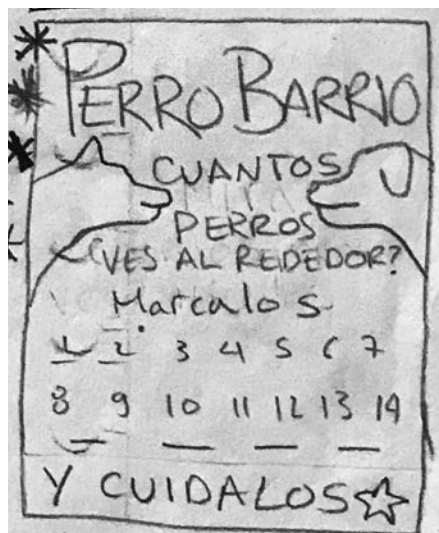 PERRO BARRIO
CUANTOS
PERROS
VES AL REDEDOR?
Marcalos
1 2 3 4 5 6 7
8 9 10 11 12 13 14
Y CUIDALOS